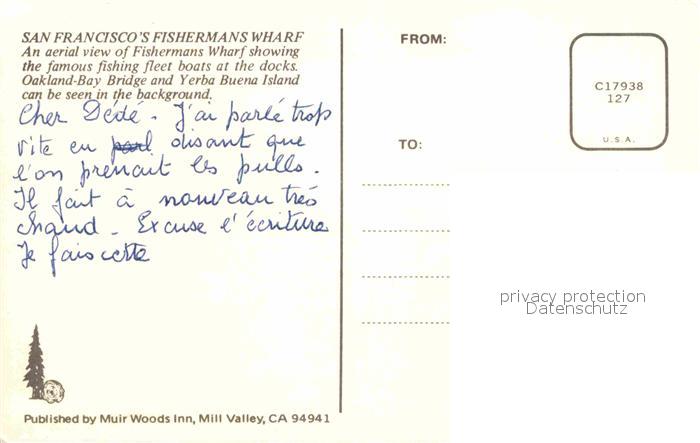 SAN FRANCISCO'S FISHERMANS WHARF
An aerial view of Fishermans Wharf showing
the famous fishing fleet boats at the docks.
Oakland-Bay Bridge and Yerba Buena Island
can be seen in the background.
Cher Dédé - J'ai parlé trop
vite en parl disant que
l'on prenait les pulls.
Il fait à nouveau très
chaud. Excuse l'écriture
Je fais cette
Published by Muir Woods Inn, Mill Valley, CA 94941
FROM:
C17938
127
U.S.A.
TO:
privacy protection
Datenschutz